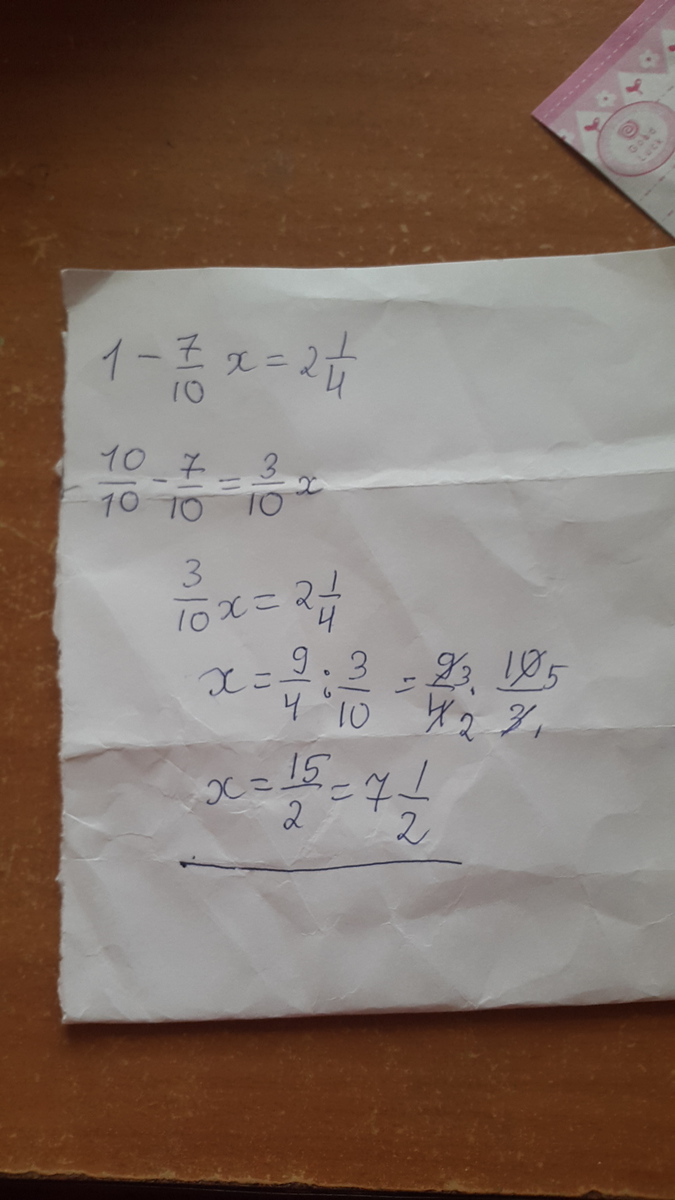 Good
Luck
1 - 7/10 x = 2 1/4
10/10 - 7/10 = 3/10 x
3/10 x = 2 1/4
x = 9/4 : 3/10 = 9 3/4 2 · 10 5/3 1
x = 15/2 = 7 1/2